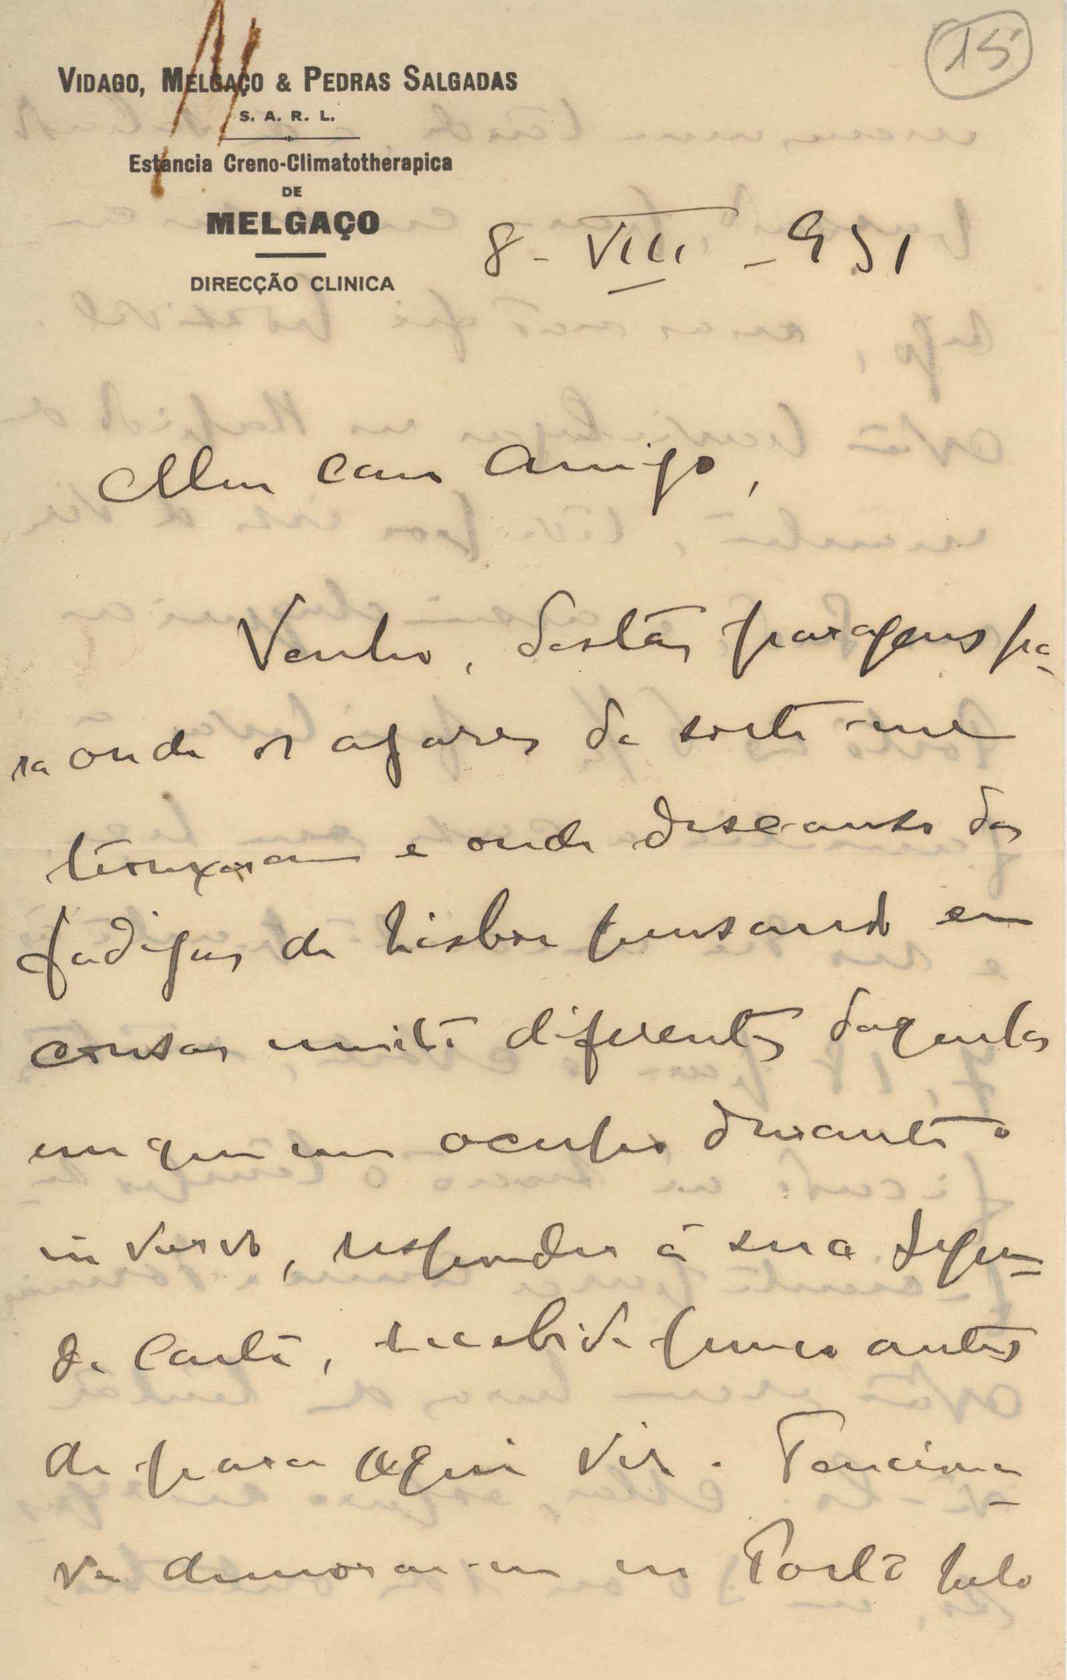 15
VIDAGO, MELGAÇO & PEDRAS SALGADAS
S. A. R. L.
Estancia Creno-Climatotherapica
DE
MELGAÇO
DIRECÇÃO CLINICA
8 - VIII - 951
Meu caro amigo,
Venho, destas paragens pa-
ra onde os azares da sorte me
trouxeram e onde descanso das
fadigas de Lisboa pensando em
cousas muito diferentes daquelas
em que me ocupo durante o
inverno, responder á sua segun-
da carta, recebida pouco antes
de para aqui vir. Tenciona-
va demorar-me no Porto pelo